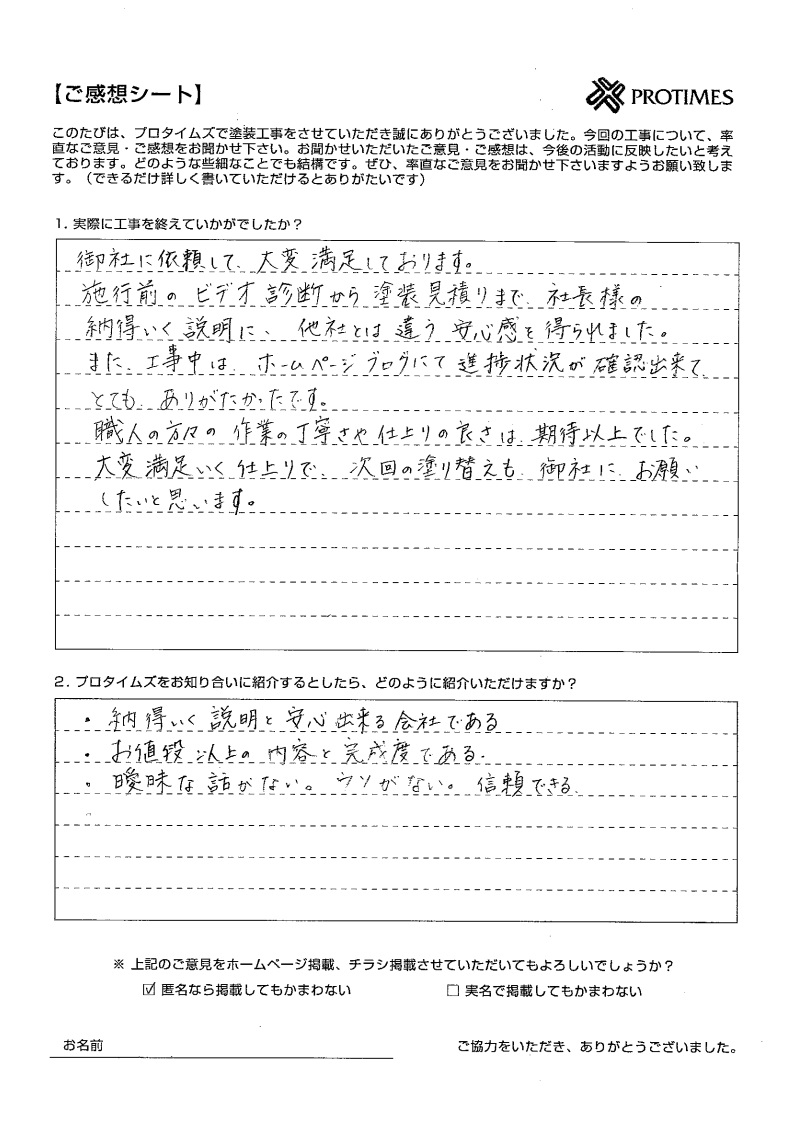 【ご感想シート】
PROTIMES
このたびは、プロタイムズで塗装工事をさせていただき誠にありがとうございました。今回の工事について、率
直なご意見・ご感想をお聞かせ下さい。お聞かせいただいたご意見・ご感想は、今後の活動に反映したいと考え
ております。どのような些細なことでも結構です。ぜひ、率直なご意見をお聞かせ下さいますようお願い致しま
す。（できるだけ詳しく書いていただけるとありがたいです）
1. 実際に工事を終えていかがでしたか？
御社に依頼して、大変満足しております。
施行前のビデオ診断から塗装見積りまで、社長様の
納得いく説明に、他社とは違う安心感を得られました。
また、工事中は、ホームページブログにて進捗状況が確認出来て、
とても、ありがたかったです。
職人の方々の作業の丁寧さや仕上りの良さは、期待以上でした。
大変満足いく仕上りで、次回の塗り替えも、御社に、お願い
したいと思います。
2. プロタイムズをお知り合いに紹介するとしたら、どのように紹介いただけますか？
・納得いく説明と安心出来る会社である
・お値段以上の内容と完成度である。
・曖昧な話がない。ウソがない。信頼できる。
※ 上記のご意見をホームページ掲載、チラシ掲載させていただいてもよろしいでしょうか？
☑ 匿名なら掲載してもかまわない　□ 実名で掲載してもかまわない
お名前　ご協力をいただき、ありがとうございました。